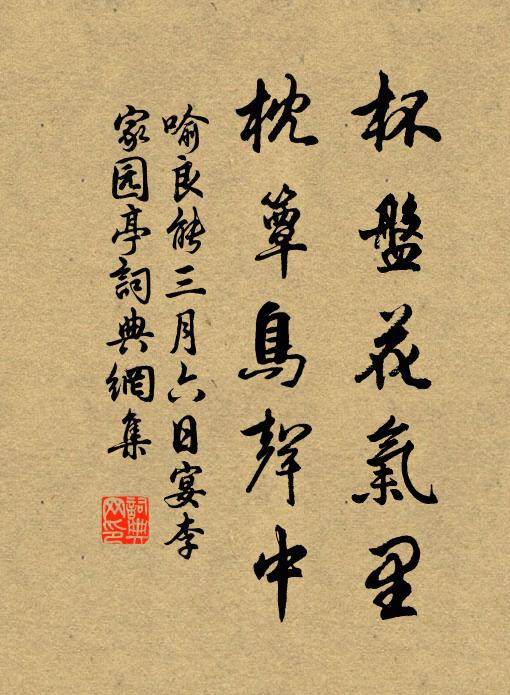 杯盤花氣里
枕簟鳥聲中
喻良能三月六日宴李
家园亭詞典網集
詞典网印